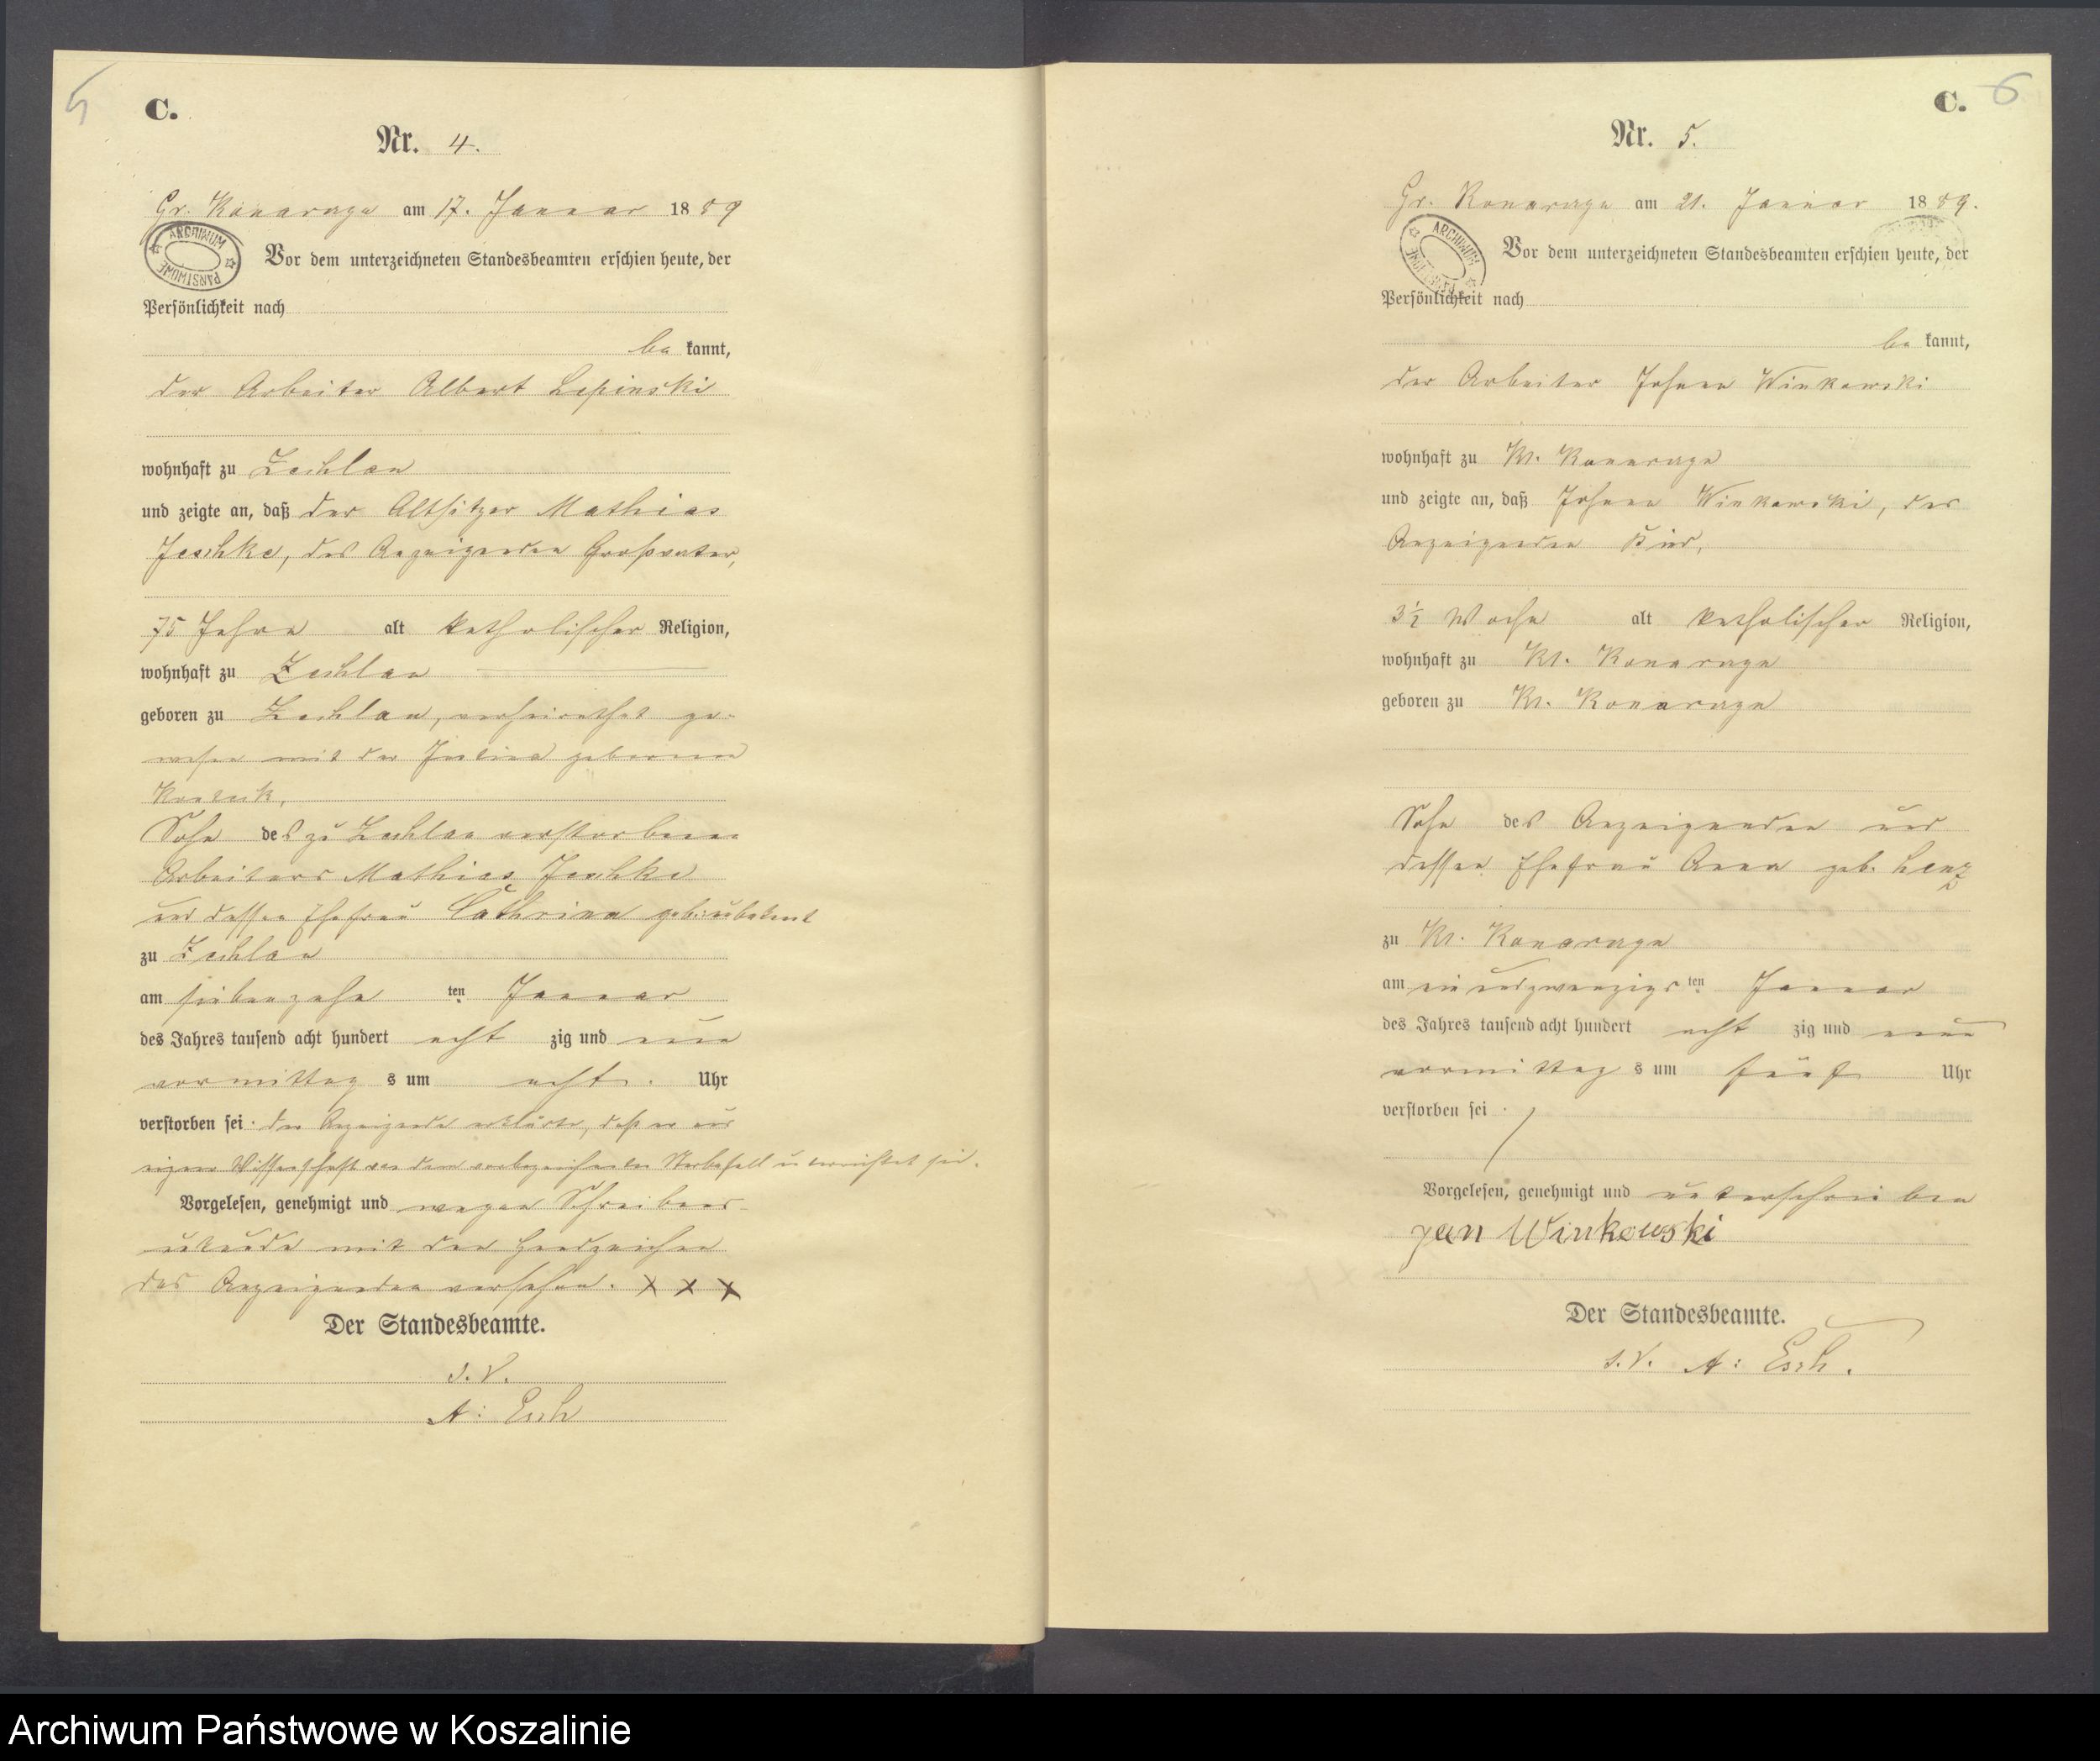 5
C.
Nr. 4.
Gr. Konarczyn am 17. Januar 1889
ARCHIWUM PAŃSTWOWE
Vor dem unterzeichneten Standesbeamten erschien heute, der
Persönlichkeit nach
be kannt,
der Arbeiter Albert Lepinski
wohnhaft zu Zechlau
und zeigte an, daß der Altsitzer Mathias
Jeschke, des Anzeigenden Großvater,
75 Jahre alt katholischer Religion,
wohnhaft zu Zechlau
geboren zu Zechlau, verheirathet ge-
wesen mit der geborenen
Sohn des zu Zechlau verstorbenen
Arbeiters Mathias Jeschke
und dessen Ehefrau Cathrina geb. unbekant
zu Zechlau
am siebenzehn ten Januar
des Jahres tausend acht hundert acht zig und neun
vormittag s um acht Uhr
verstorben sei. Der Anzeigende erklärte, daß er aus
eigener Wissenschaft von dem vorbezeichneten Sterbefall unterrichtet sei.
Vorgelesen, genehmigt und wegen Schreibens-
unkunde mit den Handzeichen
des Anzeigenden versehen. X X X
Der Standesbeamte.
I. V.
A: Esch
C. 6
Nr. 5.
Gr. Konarczyn am 21. Januar 1889.
ARCHIWUM PAŃSTWOWE
Vor dem unterzeichneten Standesbeamten erschien heute, der
Persönlichkeit nach
be kannt,
der Arbeiter Johann Winkowski
wohnhaft zu Kl. Konarczyn
und zeigte an, daß Johann Winkowski, des
Anzeigenden Kind,
3½ Woche alt katholischer Religion,
wohnhaft zu Kl. Konarczyn
geboren zu Kl. Konarczyn
Sohn des Anzeigenden und
dessen Ehefrau Anna geb. Lenz
zu Kl. Konarczyn
am ein und zwanzigs ten Januar
des Jahres tausend acht hundert acht zig und neun
vormittag s um fünf Uhr
verstorben sei.
Vorgelesen, genehmigt und unterschrieben
Jan Winkowski
Der Standesbeamte.
I. V. A: Esch.
Archiwum Państwowe w Koszalinie